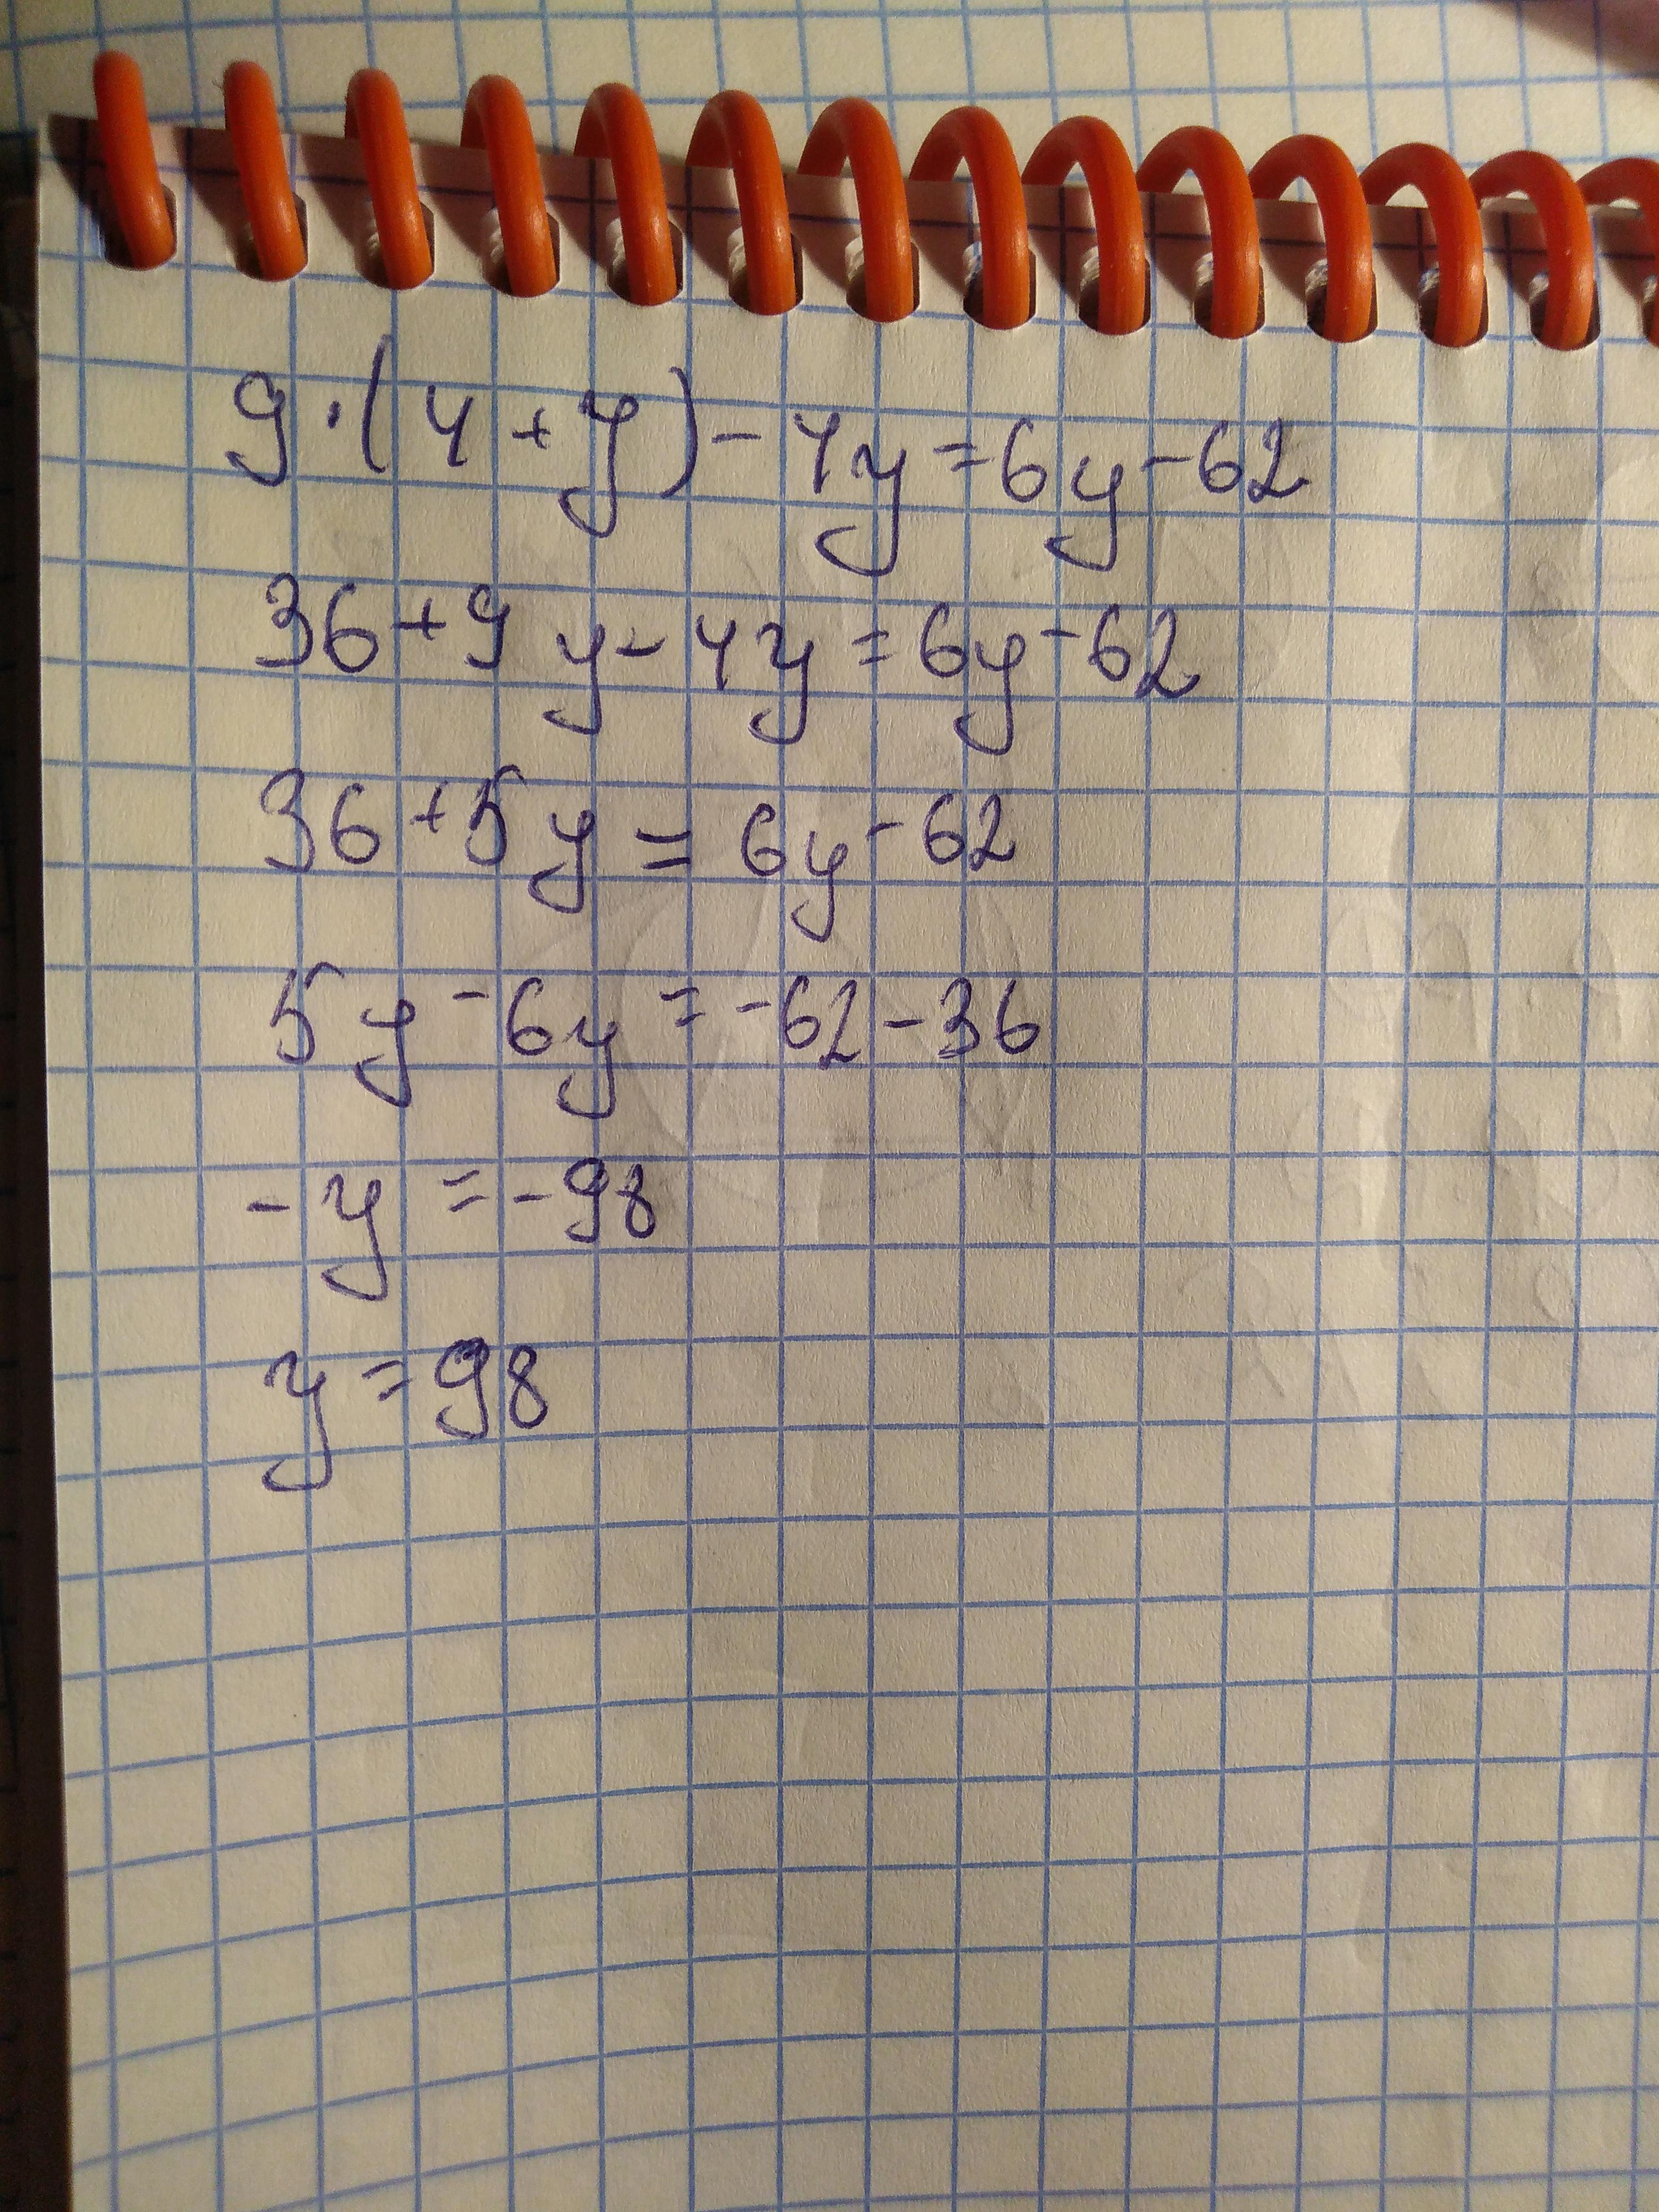 9·(4+y)-4y=6y-62
36+9y-4y=6y-62
36+5y=6y-62
5y-6y=-62-36
-y=-98
y=98